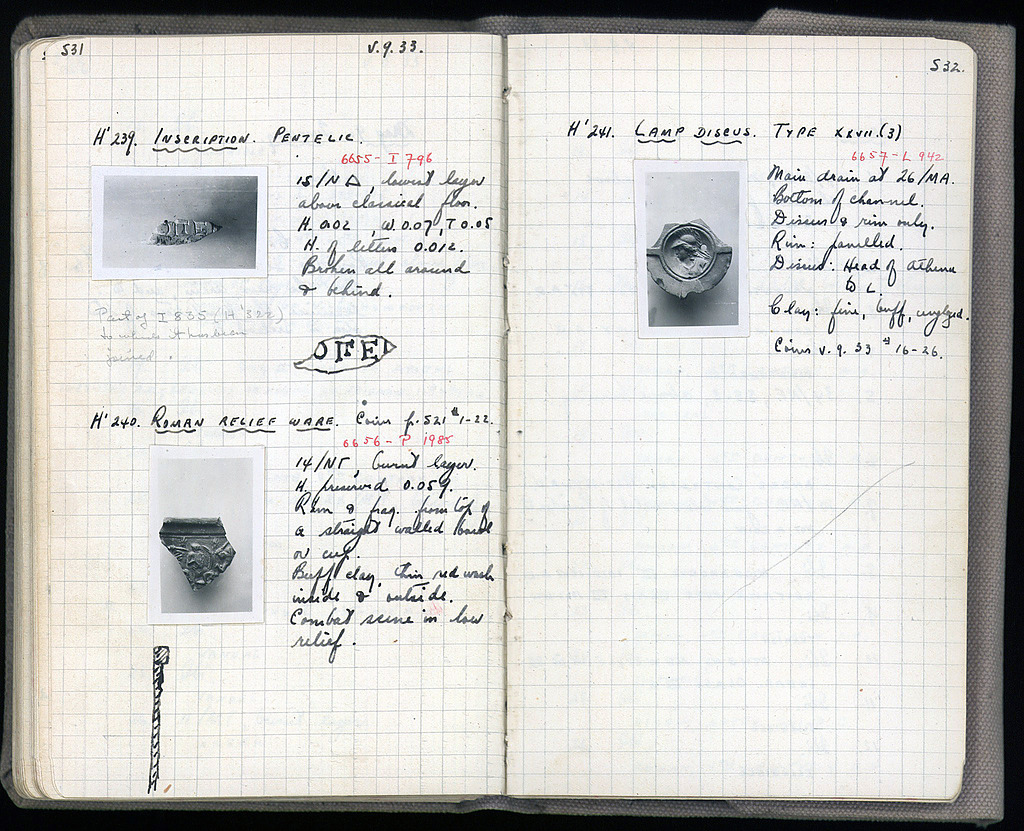 531
V.9.33.
H'239. INSCRIPTION. PENTELIC.
6655 - I 796
15/NΔ, lowest layer
above classical floor.
H. 0.02, W 0.07, T 0.05
H. of letters 0.012.
Broken all around
& behind.
Part of I 835 (H'322)
to which it has been
joined.
OΓEI
H'240. ROMAN RELIEF WARE. Coins p. 521 #1-22.
6656 - P 1985
14/ΝΓ, burnt layer.
H. preserved 0.059.
Rim & frag. from top of
a straight walled bowl
or cup.
Buff clay, thin red wash
inside & outside.
Combat scene in low
relief.
532.
H'241. LAMP DISCUS. TYPE XXVII.(3)
6657 - L 942
Main drain at 26/MA.
Bottom of channel.
Discus & rim only.
Rim: panelled.
Discus: Head of Athena
to L.
Clay: fine, buff, unglazed.
Coins V.9.33 # 16-26.